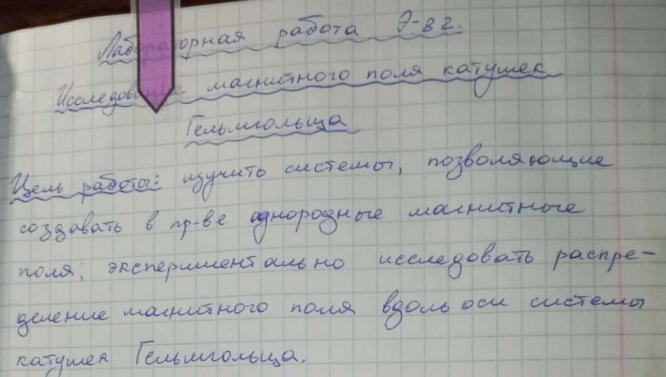 Лабораторная работа Э-82.
Исследование магнитного поля катушек
Гельмгольца
Цель работы: изучить системы, позволяющие
создавать в пр-ве однородные магнитные
поля; экспериментально исследовать распре-
деление магнитного поля вдоль оси системы
катушек Гельмгольца.